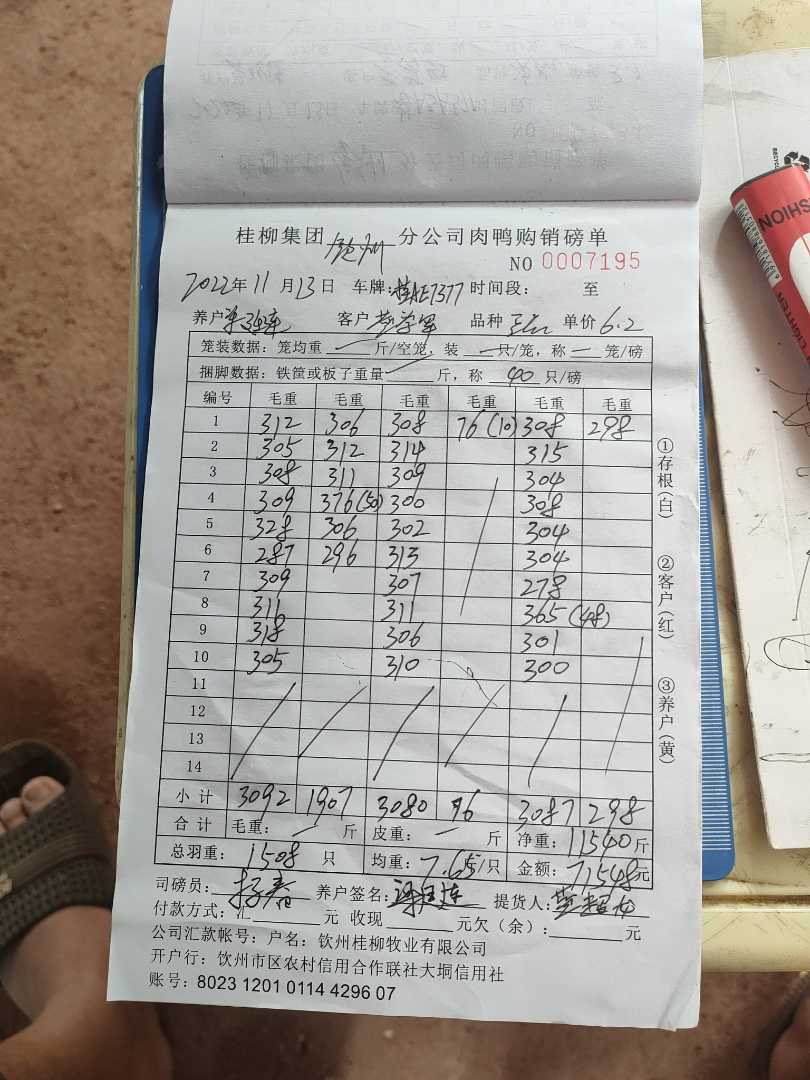 桂柳集团 钦州 分公司肉鸭购销磅单
NO 0007195
2022年11月13日 车牌:桂AE7377 时间段: 至
养户 客户 品种 单价 6.2
笼装数据: 笼均重 — 斤/空笼, 装 — 只/笼, 称 — 笼/磅
捆脚数据: 铁筐或板子重量 斤, 称 40 只/磅
编号 毛重 毛重 毛重 毛重 毛重 毛重
1 312 306 308 76(10) 308 298
2 305 312 314 315
3 308 311 309 304
4 309 376(50) 300 308
5 328 306 302 304
6 287 296 313 304
7 309 307 278
8 311 311 365(48)
9 318 306 301
10 305 310 300
11
12
13
14
小计 3092 1907 3080 76 3087 298
合计 毛重: — 斤 皮重: — 斤 净重: 11540斤
总羽重: 1508 只 均重: 7.65斤/只 金额: 71548元
司磅员: 养户签名: 提货人:
付款方式: 汇 元 收现 元欠(余): 元
公司汇款帐号: 户名: 钦州桂柳牧业有限公司
开户行: 钦州市区农村信用合作联社大垌信用社
账号: 8023 1201 0114 4296 07
①存根(白)
②客户(红)
③养户(黄)